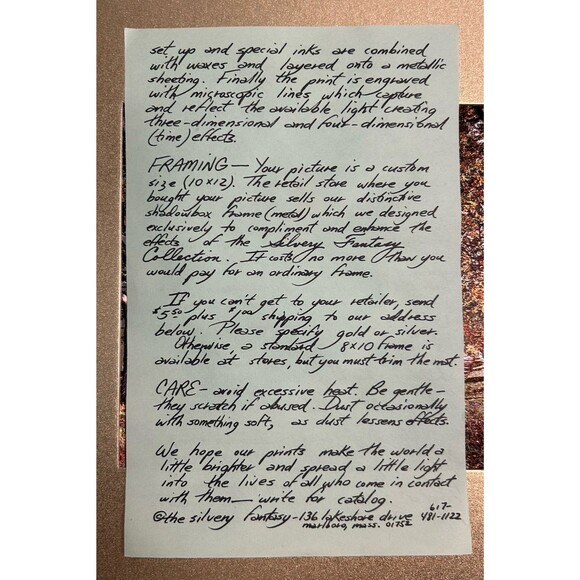 set up and special inks are combined
with waxes and layered onto a metallic
sheeting. Finally the print is engraved
with microscopic lines which capture
and reflect the available light creating
three-dimensional and four-dimensional
(time) effects.
FRAMING — Your picture is a custom
size (10x12). The retail store where you
bought your picture sells our distinctive
shadowbox frame (metal) which we designed
exclusively to compliment and enhance the
effects of the Silvery Fantasy
Collection. It costs no more than you
would pay for an ordinary frame.
If you can't get to your retailer, send
$5.50 plus $1.00 shipping to our address
below. Please specify gold or silver.
Otherwise, a standard 8x10 frame is
available at stores, but you must trim the mat.
CARE - avoid excessive heat. Be gentle -
they scratch if abused. Dust occasionally
with something soft, as dust lessens effects.
We hope our prints make the world a
little brighter and spread a little light
into the lives of all who come in contact
with them — write for catalog.
©the silvery fantasy - 136 lakeshore drive 617-481-1122
marlboro, mass. 01752